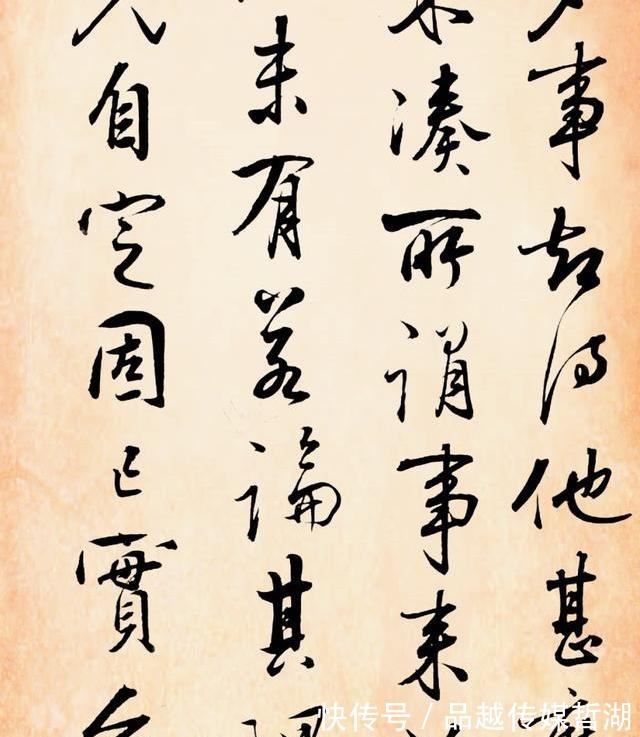 事得他甚
湊所謂事来
未有若論其
自定固已實
快传号 / 品越传媒哲湖